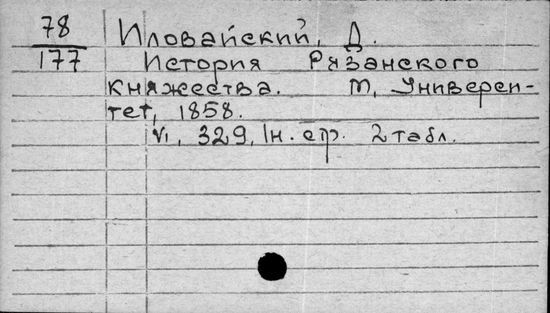 78
177
Иловайский, Д.
История Рязанского
княжества. М, Универси-
тет, 1858.
VI, 329, 1н. стр. 2 табл.